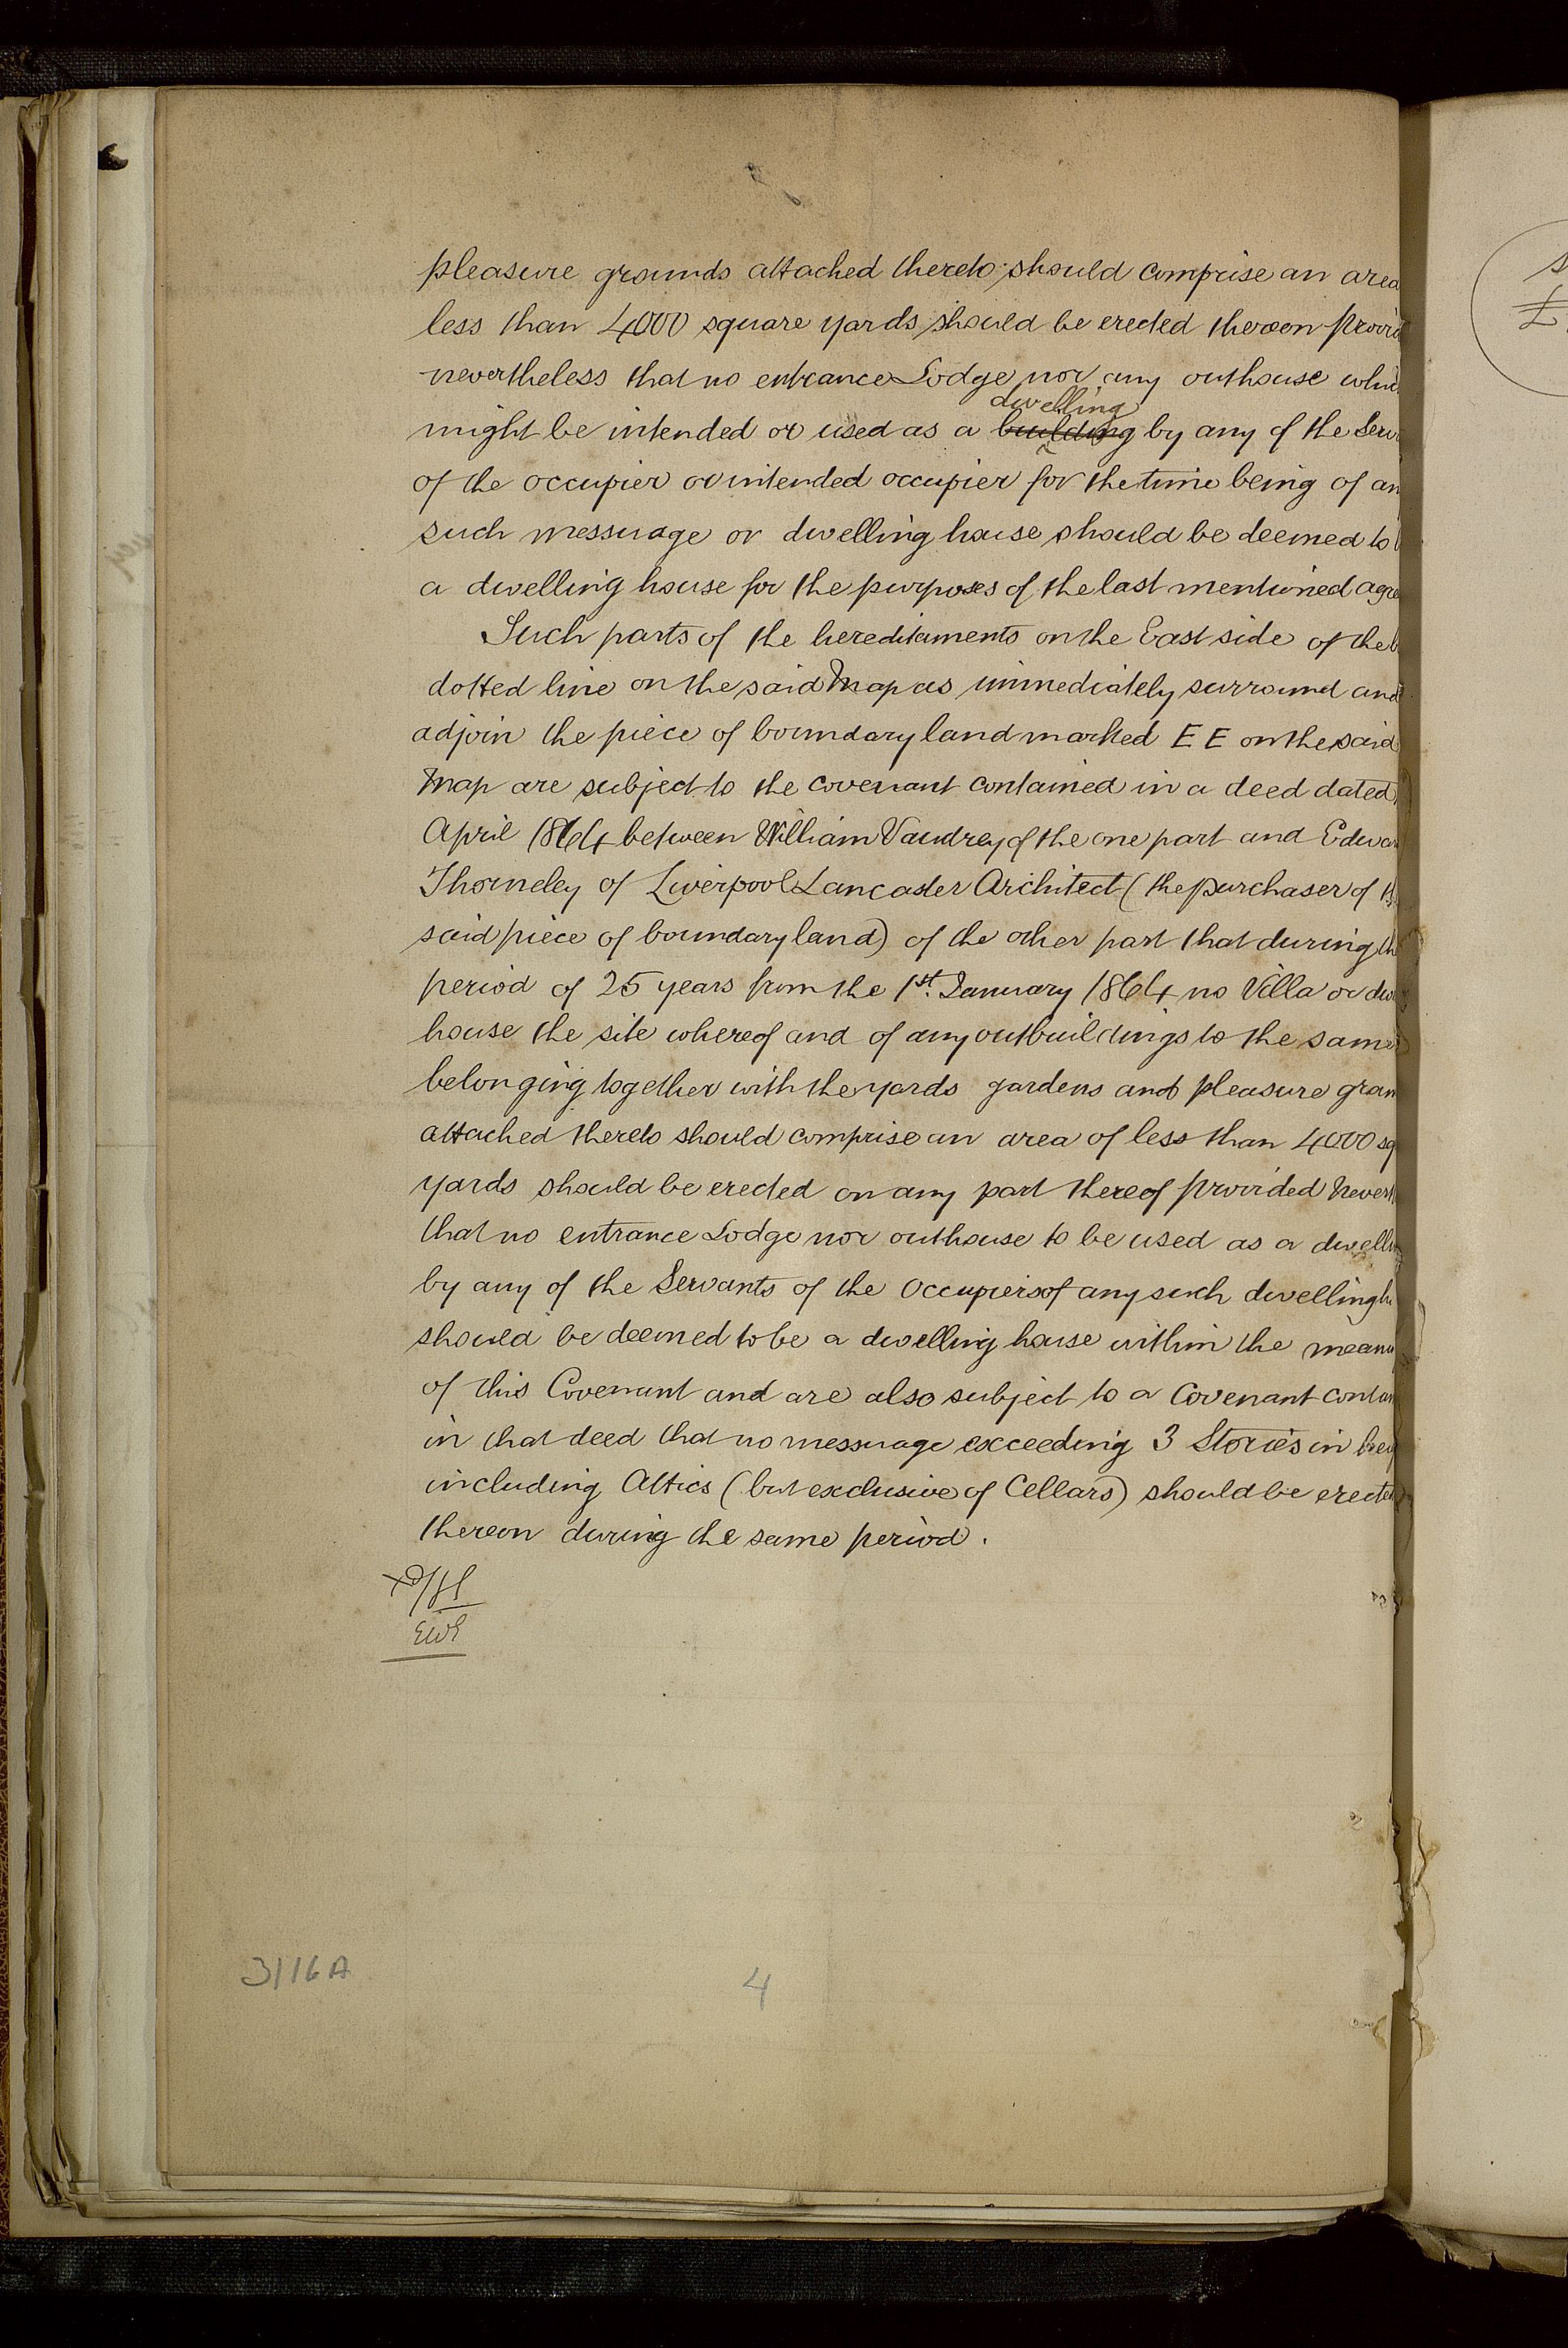 pleasure grounds attached thereto should comprise an area
less than 4000 square yards should be erected thereon provid
nevertheless that no entrance Lodge nor any outhouse whic
dwelling
might be intended or used as a building by any of the Serv
of the occupier or intended occupier for the time being of an
such messuage or dwelling house should be deemed to b
a dwelling house for the purposes of the last mentioned agre
Such parts of the hereditaments on the East side of the b
dotted line on the said Map as immediately surround and
adjoin the piece of boundary land marked E E on the said
Map are subject to the covenant contained in a deed dated
April 1864 between William Vaudrey of the one part and Edwar
Thorneley of Liverpool Lancaster Architect (the purchaser of th
said piece of boundary land) of the other part that during th
period of 25 years from the 1st. January 1864 no Villa or dwe
house the site whereof and of any outbuildings to the same
belonging together with the yards gardens and pleasure groun
attached thereto should comprise an area of less than 4000 sq
yards should be erected on any part thereof provided Neverth
that no entrance Lodge nor outhouse to be used as a dwellin
by any of the Servants of the Occupiers of any such dwelling h
should be deemed to be a dwelling house within the meanin
of this Covenant and are also subject to a Covenant contain
in that deed that no messuage exceeding 3 Stories in heig
including Attics (but exclusive of Cellars) should be erected
thereon during the same period.
3116A
4
£